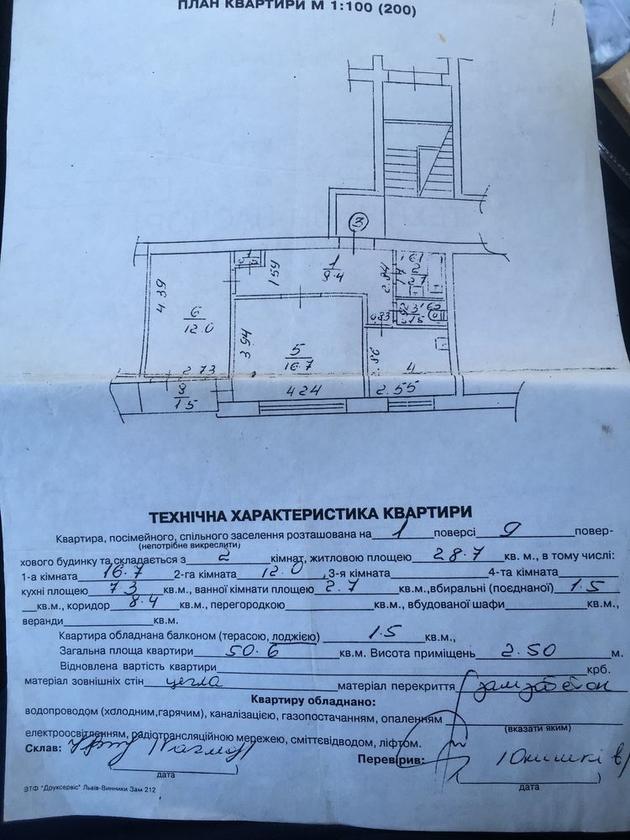 ПЛАН КВАРТИРИ М 1:100 (200)
3
1
9.4
1.59
2.84
6
12.0
4.39
2.73
5
16.7
3.94
4.24
4
2.55
0.83
1.5
ТЕХНІЧНА ХАРАКТЕРИСТИКА КВАРТИРИ
Квартира, посімейного, спільного заселення розташована на 1 поверсі 9 повер-
(непотрібне викреслити)
хового будинку та складається з 2 кімнат, житловою площею 28.7 кв. м., в тому числі:
1-а кімната 16.7 2-га кімната 12.0 ,3-я кімната 4-та кімната
кухні площею 7.3 кв.м., ванної кімнати площею 2.7 кв.м.,вбиральні (поєднаної) 1.5
кв.м., коридор 8.4 кв.м., перегородкою кв.м., вбудованої шафи кв.м.,
веранди кв.м.
Квартира обладнана балконом (терасою, лоджією) 1.5 кв.м.,
Загальна площа квартири 50.6 кв.м. Висота приміщень 2.50 м.
Відновлена вартість квартири крб.
матеріал зовнішніх стін цегла матеріал перекриття
Квартиру обладнано:
водопроводом (холодним,гарячим), каналізацією, газопостачанням, опаленням
(вказати яким)
електроосвітленням, радіотрансляційною мережею, сміттєвідводом, ліфтом.
Склав: Перевірив:
дата дата
ВТФ "Друксервіс" Львів-Винники Зам 212